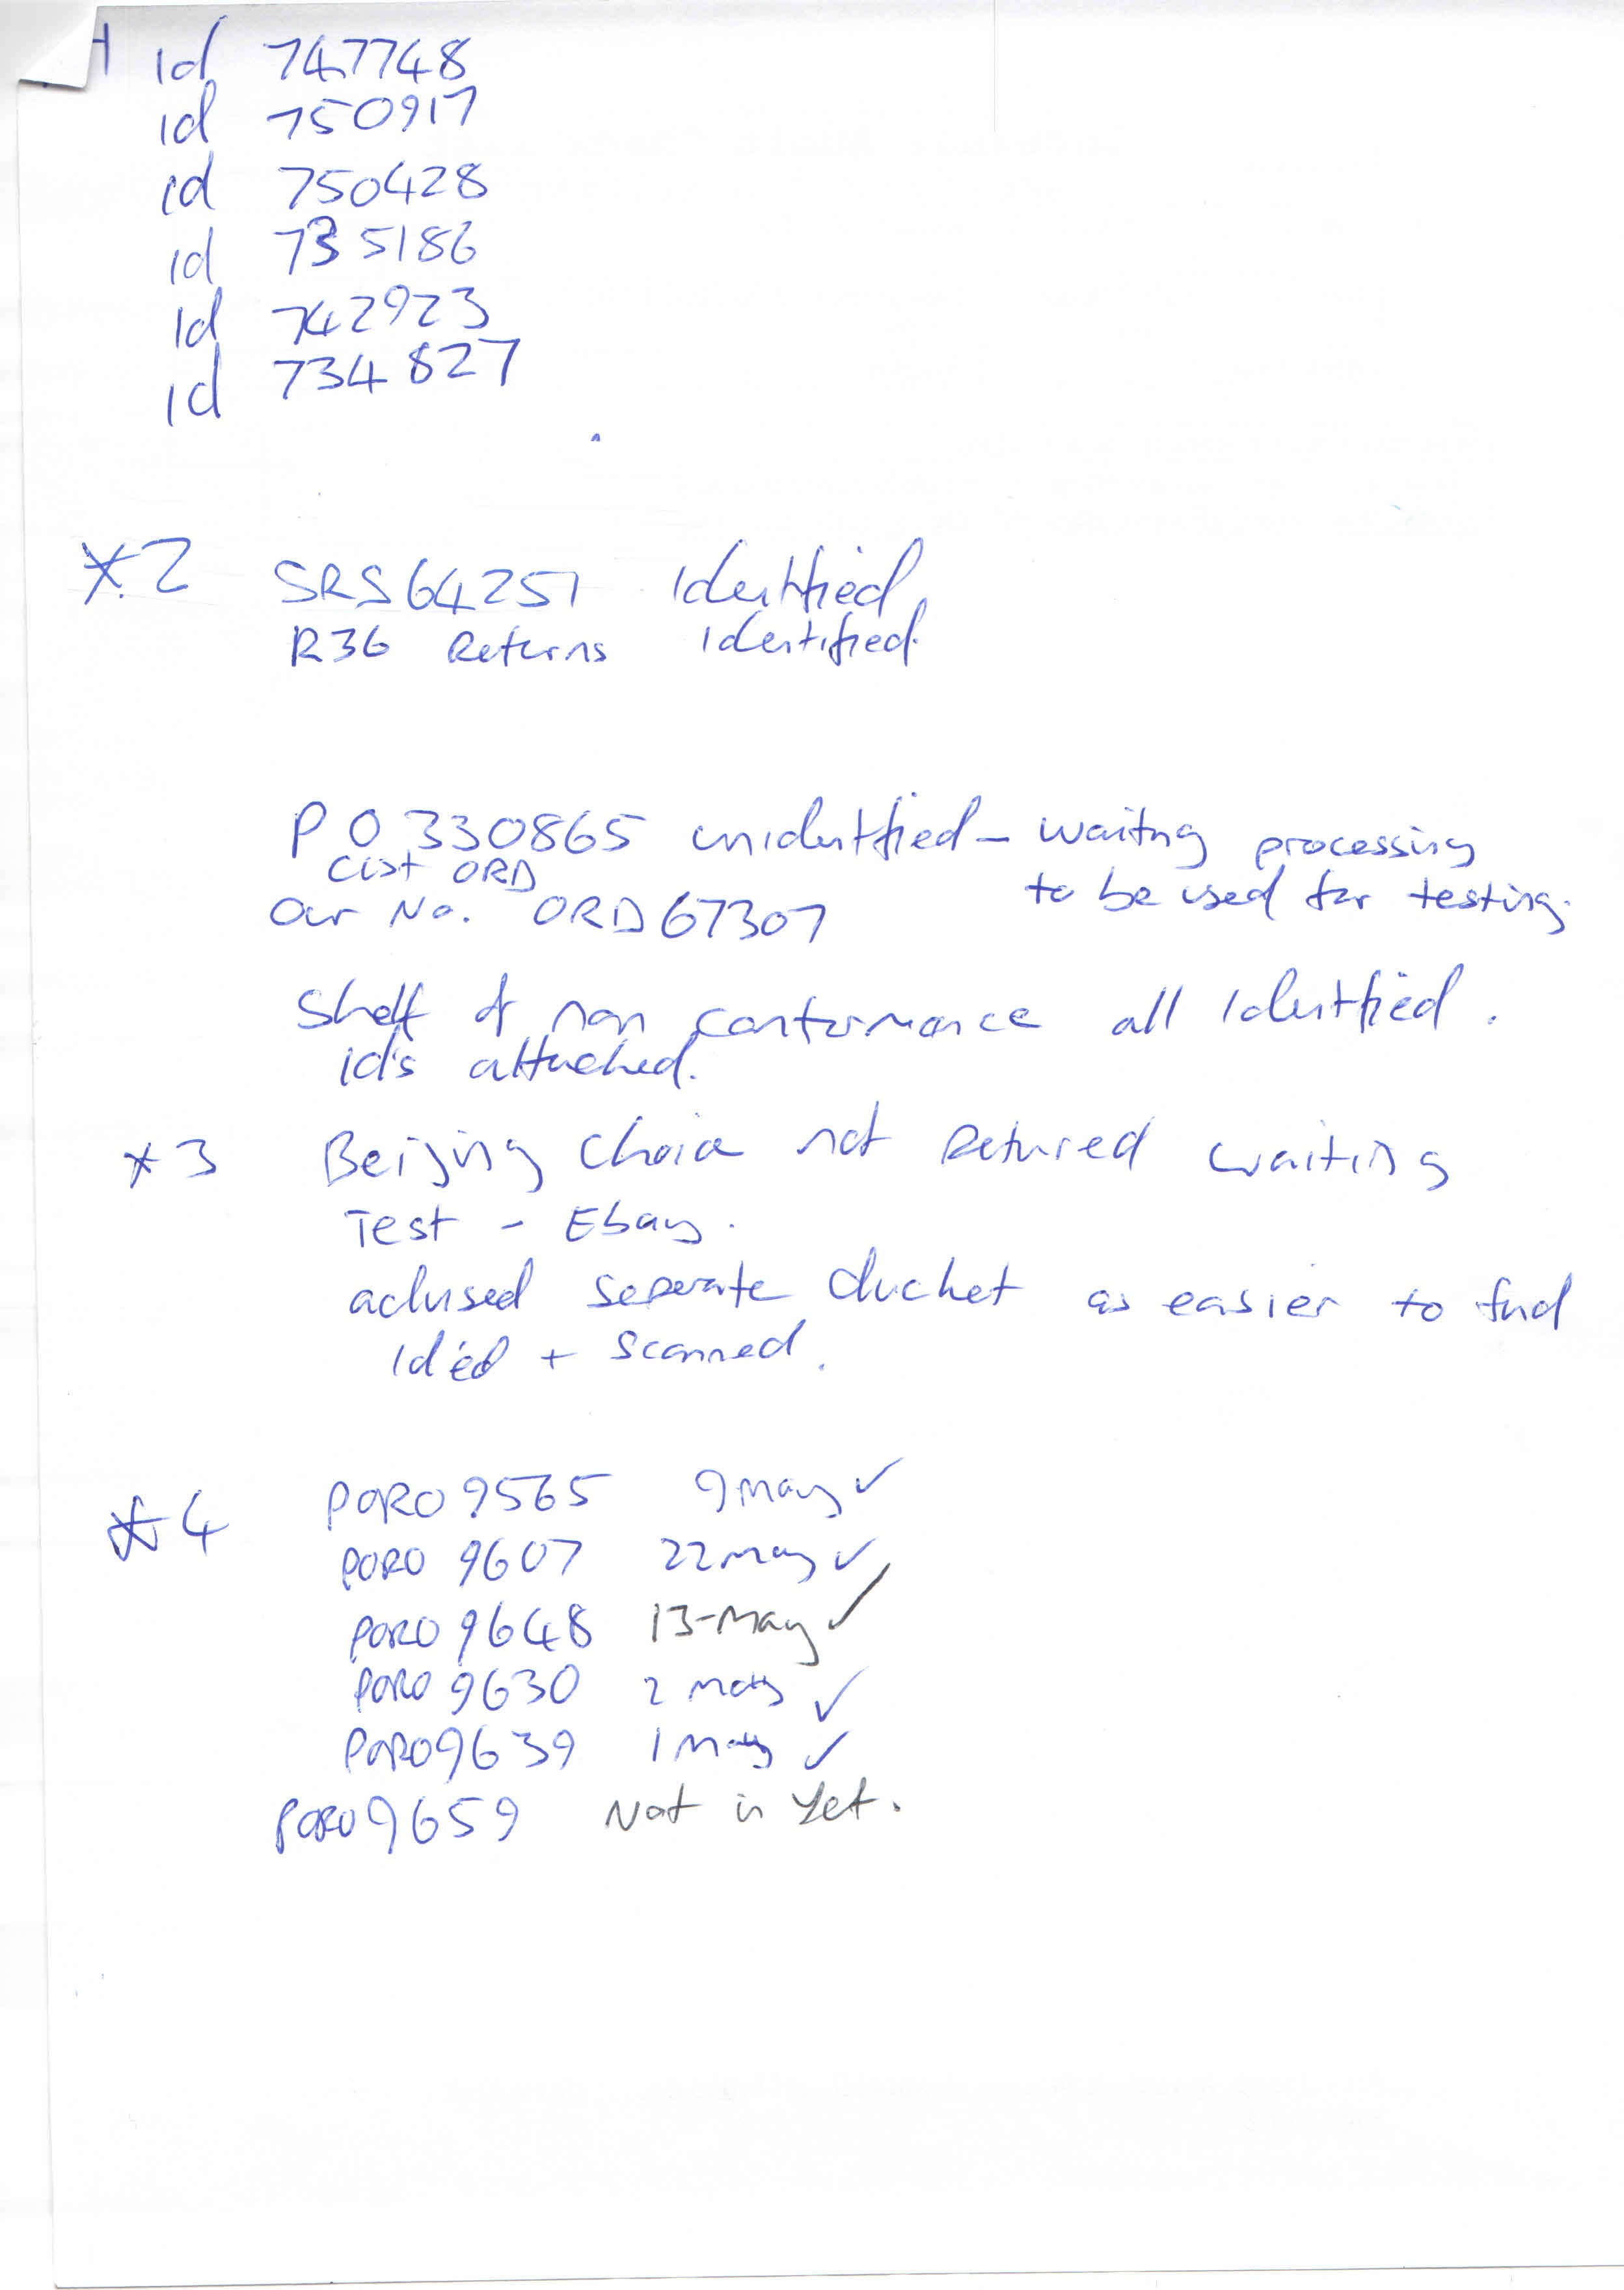 id 747748
id 750917
id 750428
id 735186
id 742923
id 734827
*2 SRS64251 Identified
R36 Returns Identified.
PO 330865 unidentified - waiting processing
Cust ORD to be used for testing.
Our No. ORD67307
Shelf of non conformance all Identified.
id's attached.
*3 Beijing Choice not Retured waiting
Test - Ebay.
advised seperate docket as easier to find
Id'ed + Scanned.
*4 PORO 9565 9 May ✓
PORO 9607 22 May ✓
PORO 9648 13-May ✓
PORO 9630 2 May ✓
PORO 9639 1 May ✓
PORO 9659 Not in Yet.